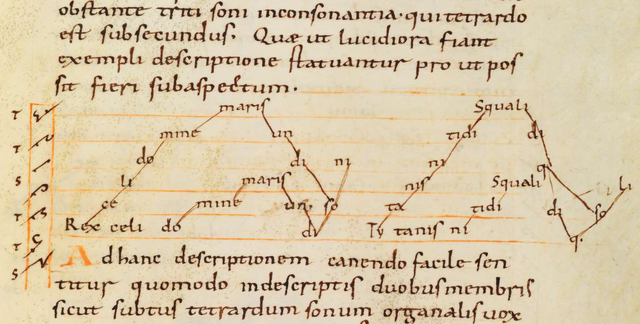 obstante triti soni inconsonantia· qui tetrardo
est subsecundus. Quæ ut lucidiora fiant
exempli descriptione statuantur pro ut pos
sit fieri subaspectum.
maris Squali
T mine un tidi di
T do di ni ni q.
S li maris nis Squali li
T ce mine un. so ta di so
T Rex celi do di Ty tanis ni tidi q.
S
Ad hanc descriptionem canendo facile sen
titur quomodo indescriptis duobus membris
sicut subtus tetrardum sonum organalis uox